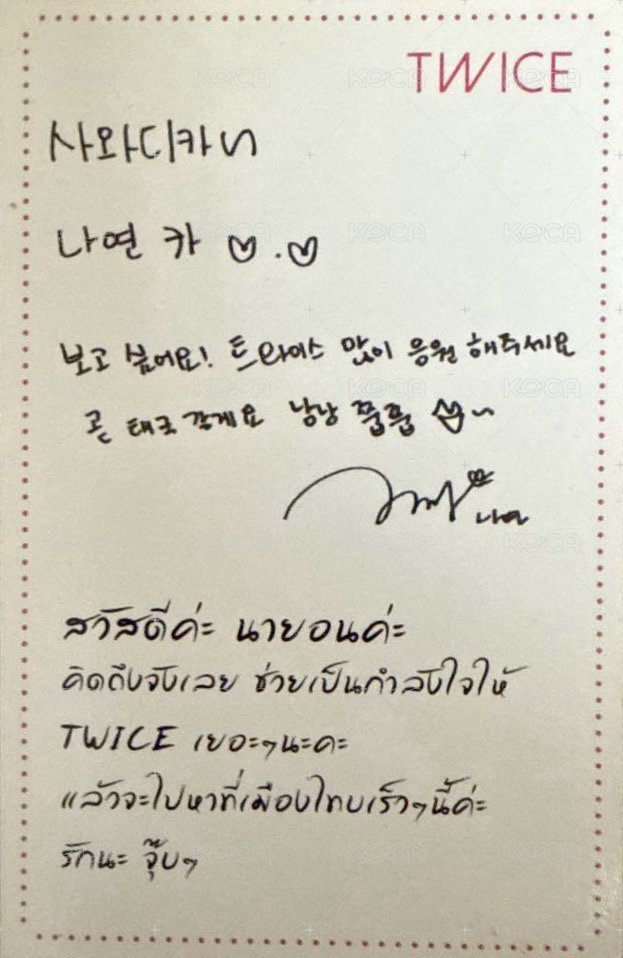 TWICE
사와디카
나연 카 ♡.♡
보고 싶어요! 트와이스 많이 응원 해주세요
곧 태국 갈게요
나연
สวัสดีค่ะ นายอนค่ะ
คิดถึงจังเลย ช่วยเป็นกำลังใจให้
TWICE เยอะๆนะคะ
แล้วจะไปหาที่เมืองไทยเร็วๆนี้ค่ะ
รักนะ จุ๊บๆ
KOCA